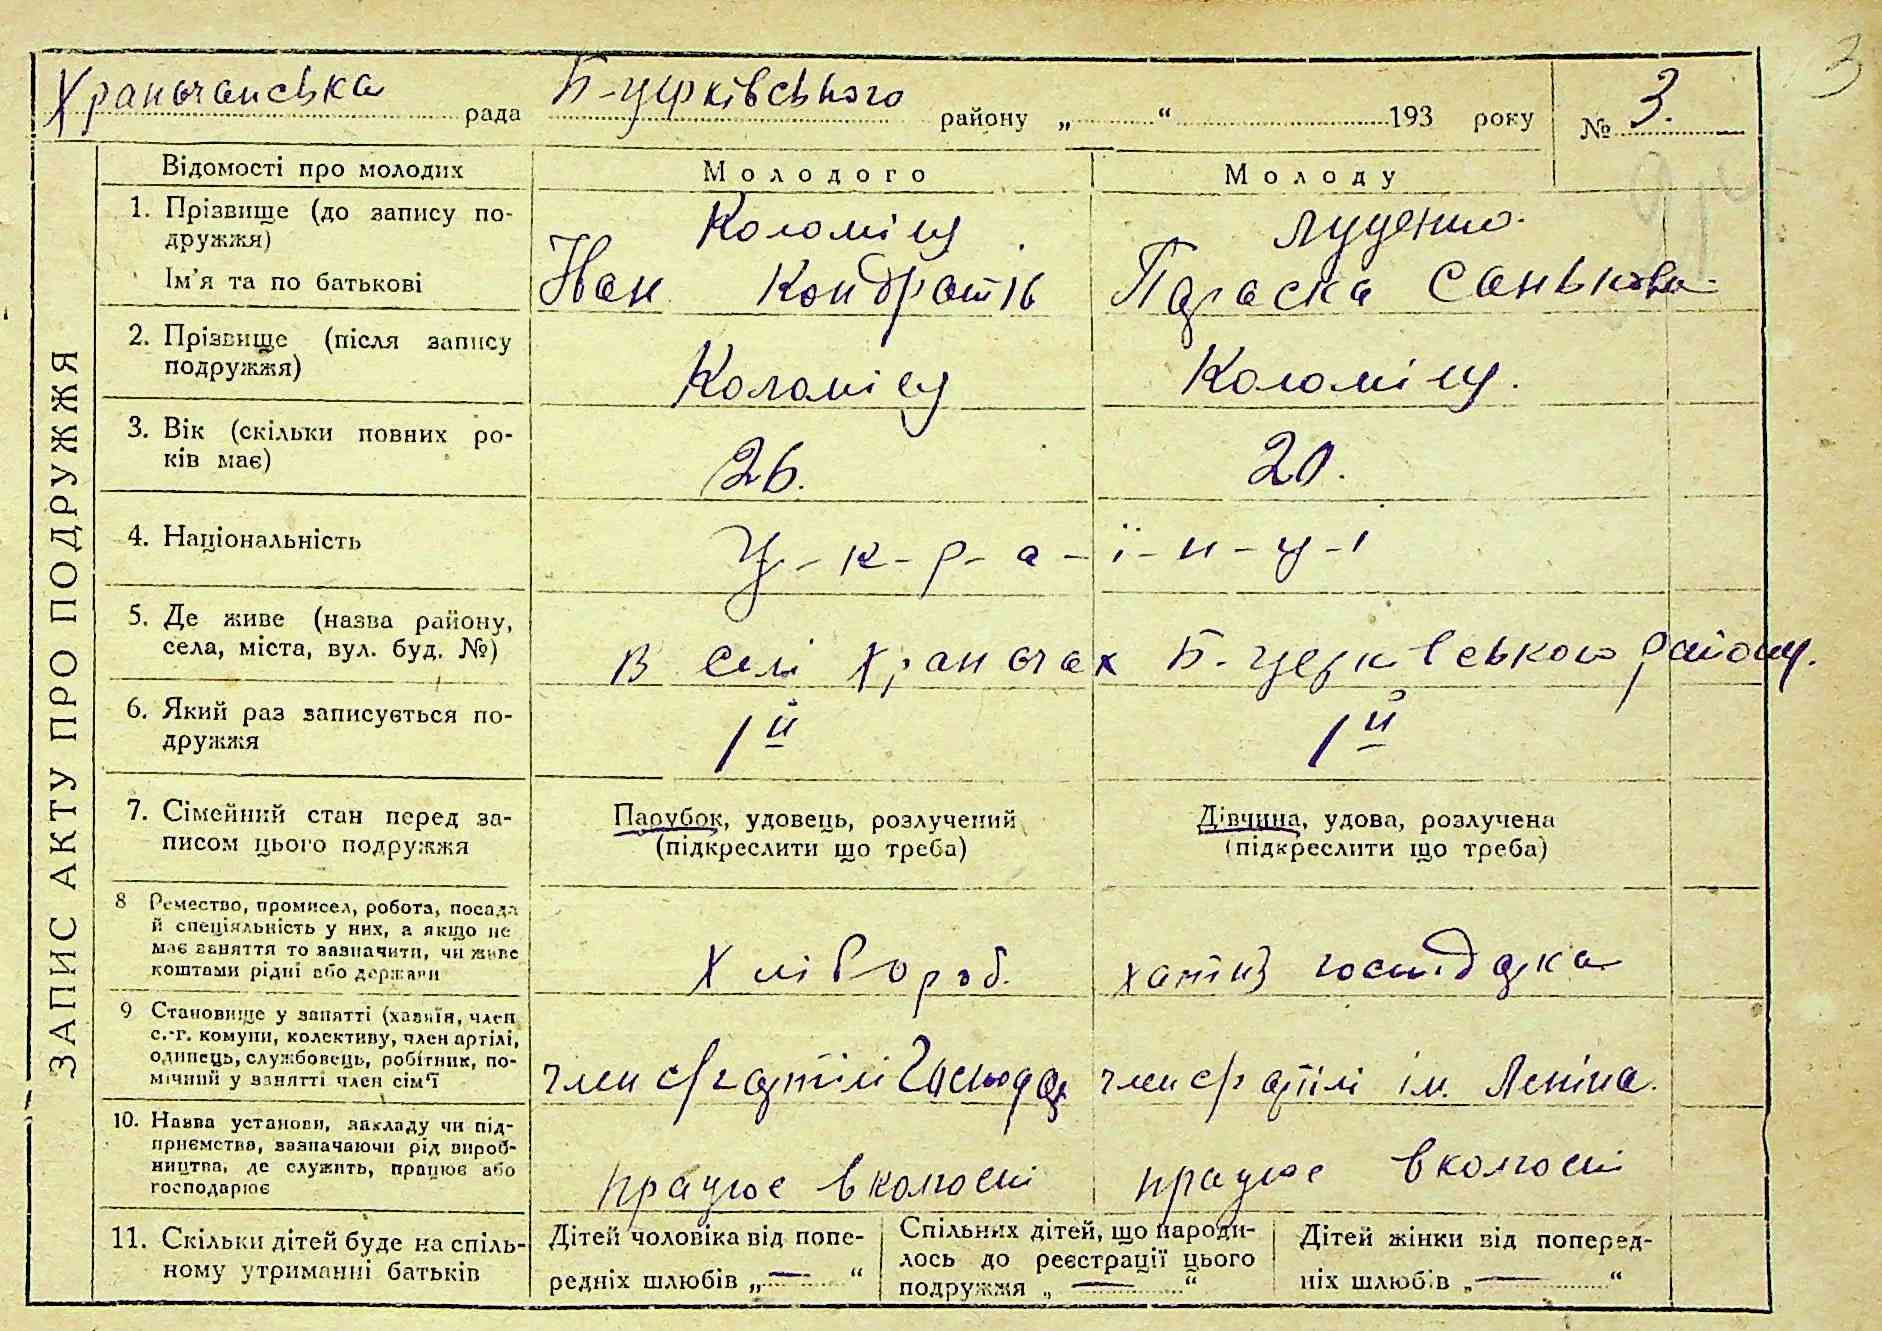 3
Храпачанська рада Б-церківського району „ “ 193 року № 3.
ЗАПИС АКТУ ПРО ПОДРУЖЖЯ
Відомості про молодих Молодого Молоду
1. Прізвище (до запису по-
дружжя) Коломієц Луценко.
Ім'я та по батькові Іван Кондратів Параска Санькова
2. Прізвище (після запису
подружжя) Коломієц Коломієц.
3. Вік (скільки повних ро-
ків має) 26. 20.
4. Національність У-к-р-а-ї-н-ц-і
5. Де живе (назва району,
села, міста, вул. буд. №) в селі Храпачах Б-церківського району.
6. Який раз записується по-
дружжя 1й 1й
7. Сімейний стан перед за-
писом цього подружжя
Парубок, удовець, розлучений
(підкреслити що треба)
Дівчина, удова, розлучена
(підкреслити що треба)
8 Ремество, промисел, робота, посада
й спеціяльність у них, а якщо не
має заняття то зазначити, чи живе
коштами рідні або держави
Хлібороб. хатня господарка
9 Становище у занятті (хазяїн, член
с.-г. комуни, колективу, член артілі,
одинець, службовець, робітник, по-
мічний у занятті член сім'ї
член с/г артілі член с/г артілі ім. Леніна.
10. Назва установи, закладу чи під-
приємства, зазначаючи рід вироб-
ництва, де служить, працює або
господарює
працює в колгоспі працює в колгоспі
11. Скільки дітей буде на спіль-
ному утриманні батьків
Дітей чоловіка від попе-
редніх шлюбів „—“
Спільних дітей, що народи-
лось до реєстрації цього
подружжя „—“
Дітей жінки від поперед-
ніх шлюбів „—“